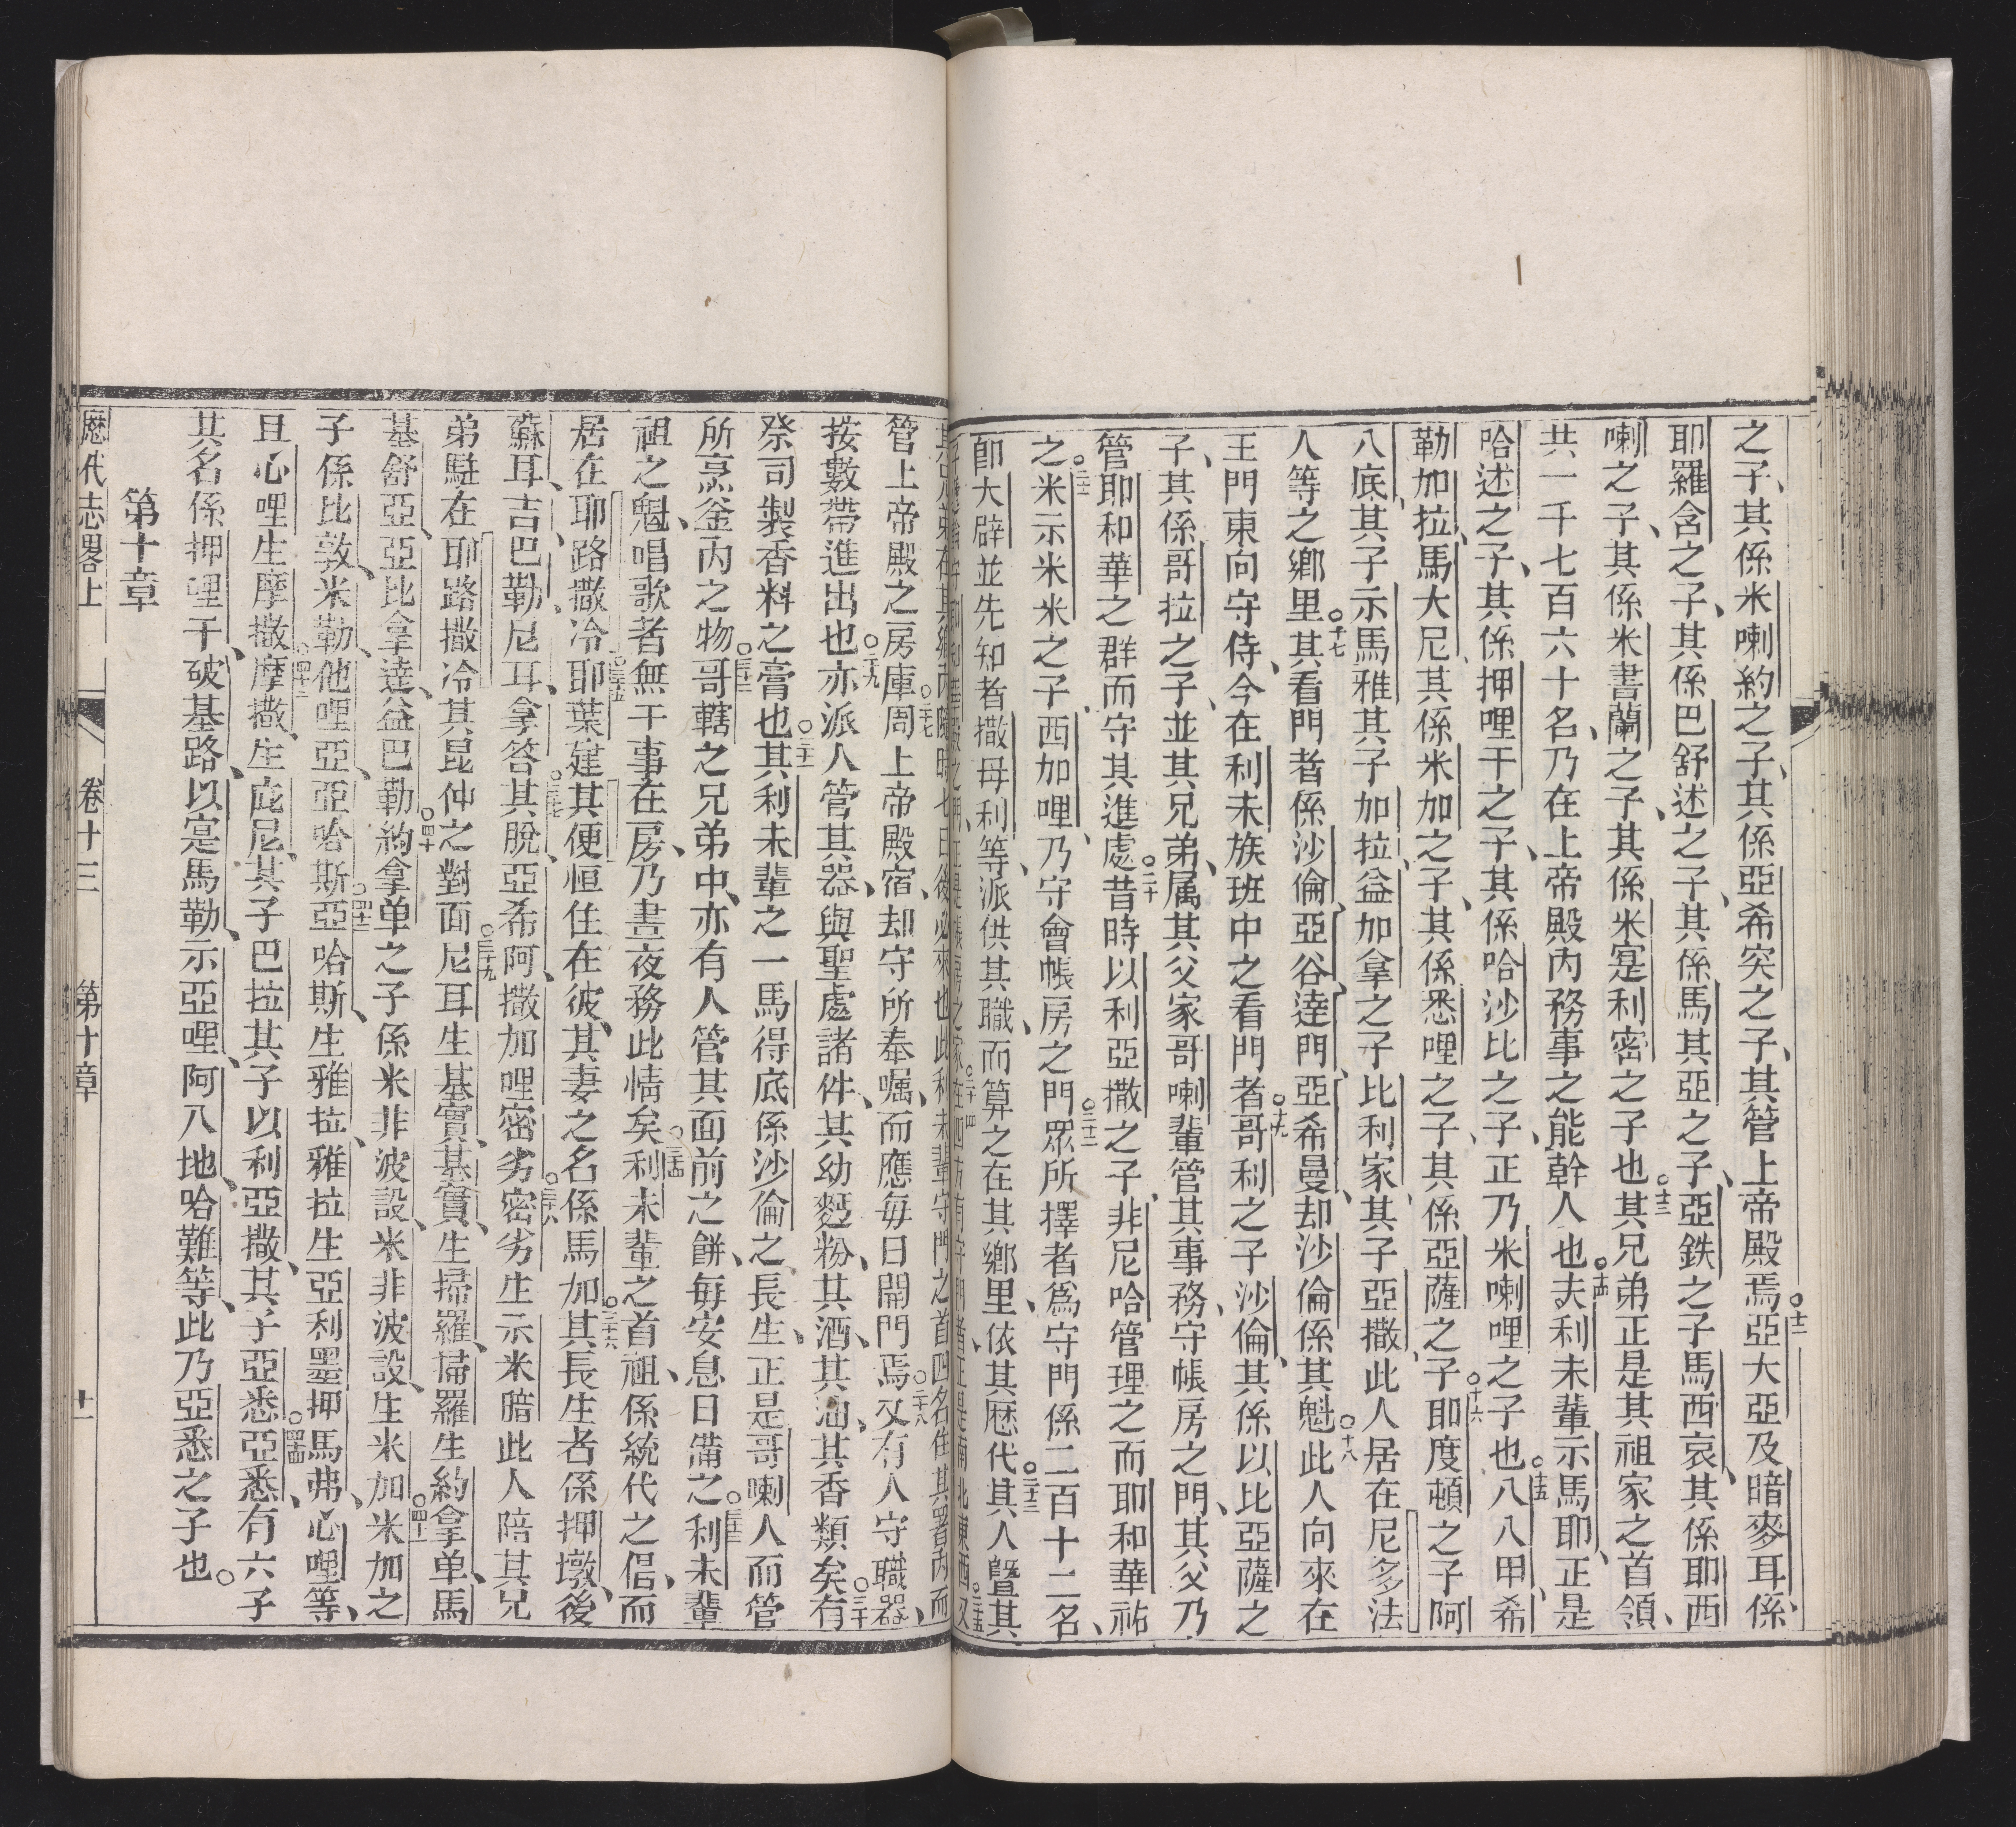 之子、其係米喇約之子、其係亞希突之子、其管上帝殿焉○十二亞大亞及暗麥耳係、
耶羅含之子、其係巴舒述之子、其係馬其亞之子、亞鉄之子馬西哀、其係耶西
喇之子、其係米書蘭之子、其係米寔利密之子也○十三其兄弟正是其祖家之首領、
共一千七百六十名、乃在上帝殿內務事之能幹人也○十四夫利未輩示馬耶、正是
哈述之子、其係押哩干之子、其係哈沙比之子、正乃米喇哩之子也○十五八八甲、希
勒加拉、馬大尼其係米加之子、其係悉哩之子、其係亞薩之子○十六耶度頓之子阿
八底、其子示馬雅其子加拉、益加拿之子比利家、其子亞撒、此人居在尼多法
人等之鄉里○十七其看門者係沙倫、亞谷、達門、亞希曼、却沙倫係其魁○十八此人向來在
王門東向守侍、今在利未族班中之看門者○十九哥利之子沙倫、其係以比亞薩之
子、其係哥拉之子、並其兄弟、属其父家哥喇輩管其事務、守帳房之門、其父乃
管耶和華之群而守其進處○二十昔時以利亞撒之子、非尼哈管理之而耶和華祐
之○二十一米示米米之子、西加哩、乃守會帳房之門○二十二眾所擇者爲守門係二百十二名、
卽大辟並先知者撒母利等、派供其職、而算之在其鄉里、依其厯代○二十三其人曁其
管上帝殿之房庫○二十七周上帝殿宿、却守所奉嘱、而應每日開門焉○二十八又有人守職器、
按數帶進出也○二十九亦派人管其器、與聖處諸件、其幼麪粉、其酒、其油、其香類矣○三十有
祭司製香料之膏也○三十一其利未輩之一馬得底係沙倫之長生、正是哥喇人而管
所烹釜內之物○三十二哥轄之兄弟中、亦有人管其面前之餅、每安息日備之○三十三利未輩
祖之魁、唱歌者無干事在房、乃晝夜務此情矣○三十四利未輩之首祖、係統代之倡、而
居在耶路撒冷○三十五耶葉建其便恒住在彼、其妻之名係馬加○三十六其長生者係押墩、後
蘇耳、吉、巴勒、尼耳、拿答○三十七其脫、亞希阿、撒加哩密劣○三十八密劣生示米暗此人陪其兄
弟駐在耶路撒冷其昆仲之對面○三十九尼耳生基實、基實、生掃羅、掃羅生約拿单、馬
基舒亞、亞比拿達、益巴勒○四十約拿单之子係米非波設、米非波設、生米加○四十一米加之
子係比敦、米勒、他哩亞、亞哈斯○四十二亞哈斯、生雅拉、雅拉生亞利墨押馬弗、心哩等、
且心哩生摩撒○四十三摩撒、生庇尼、其子巴拉其子以利亞撒、其子亞悉○四十四亞悉、有六子
其名係押哩干、破基路、以寔馬勒、示亞哩、阿八地、哈難等、此乃亞悉之子也。
第十章
厯代志畧上 卷十三 第十章 十一